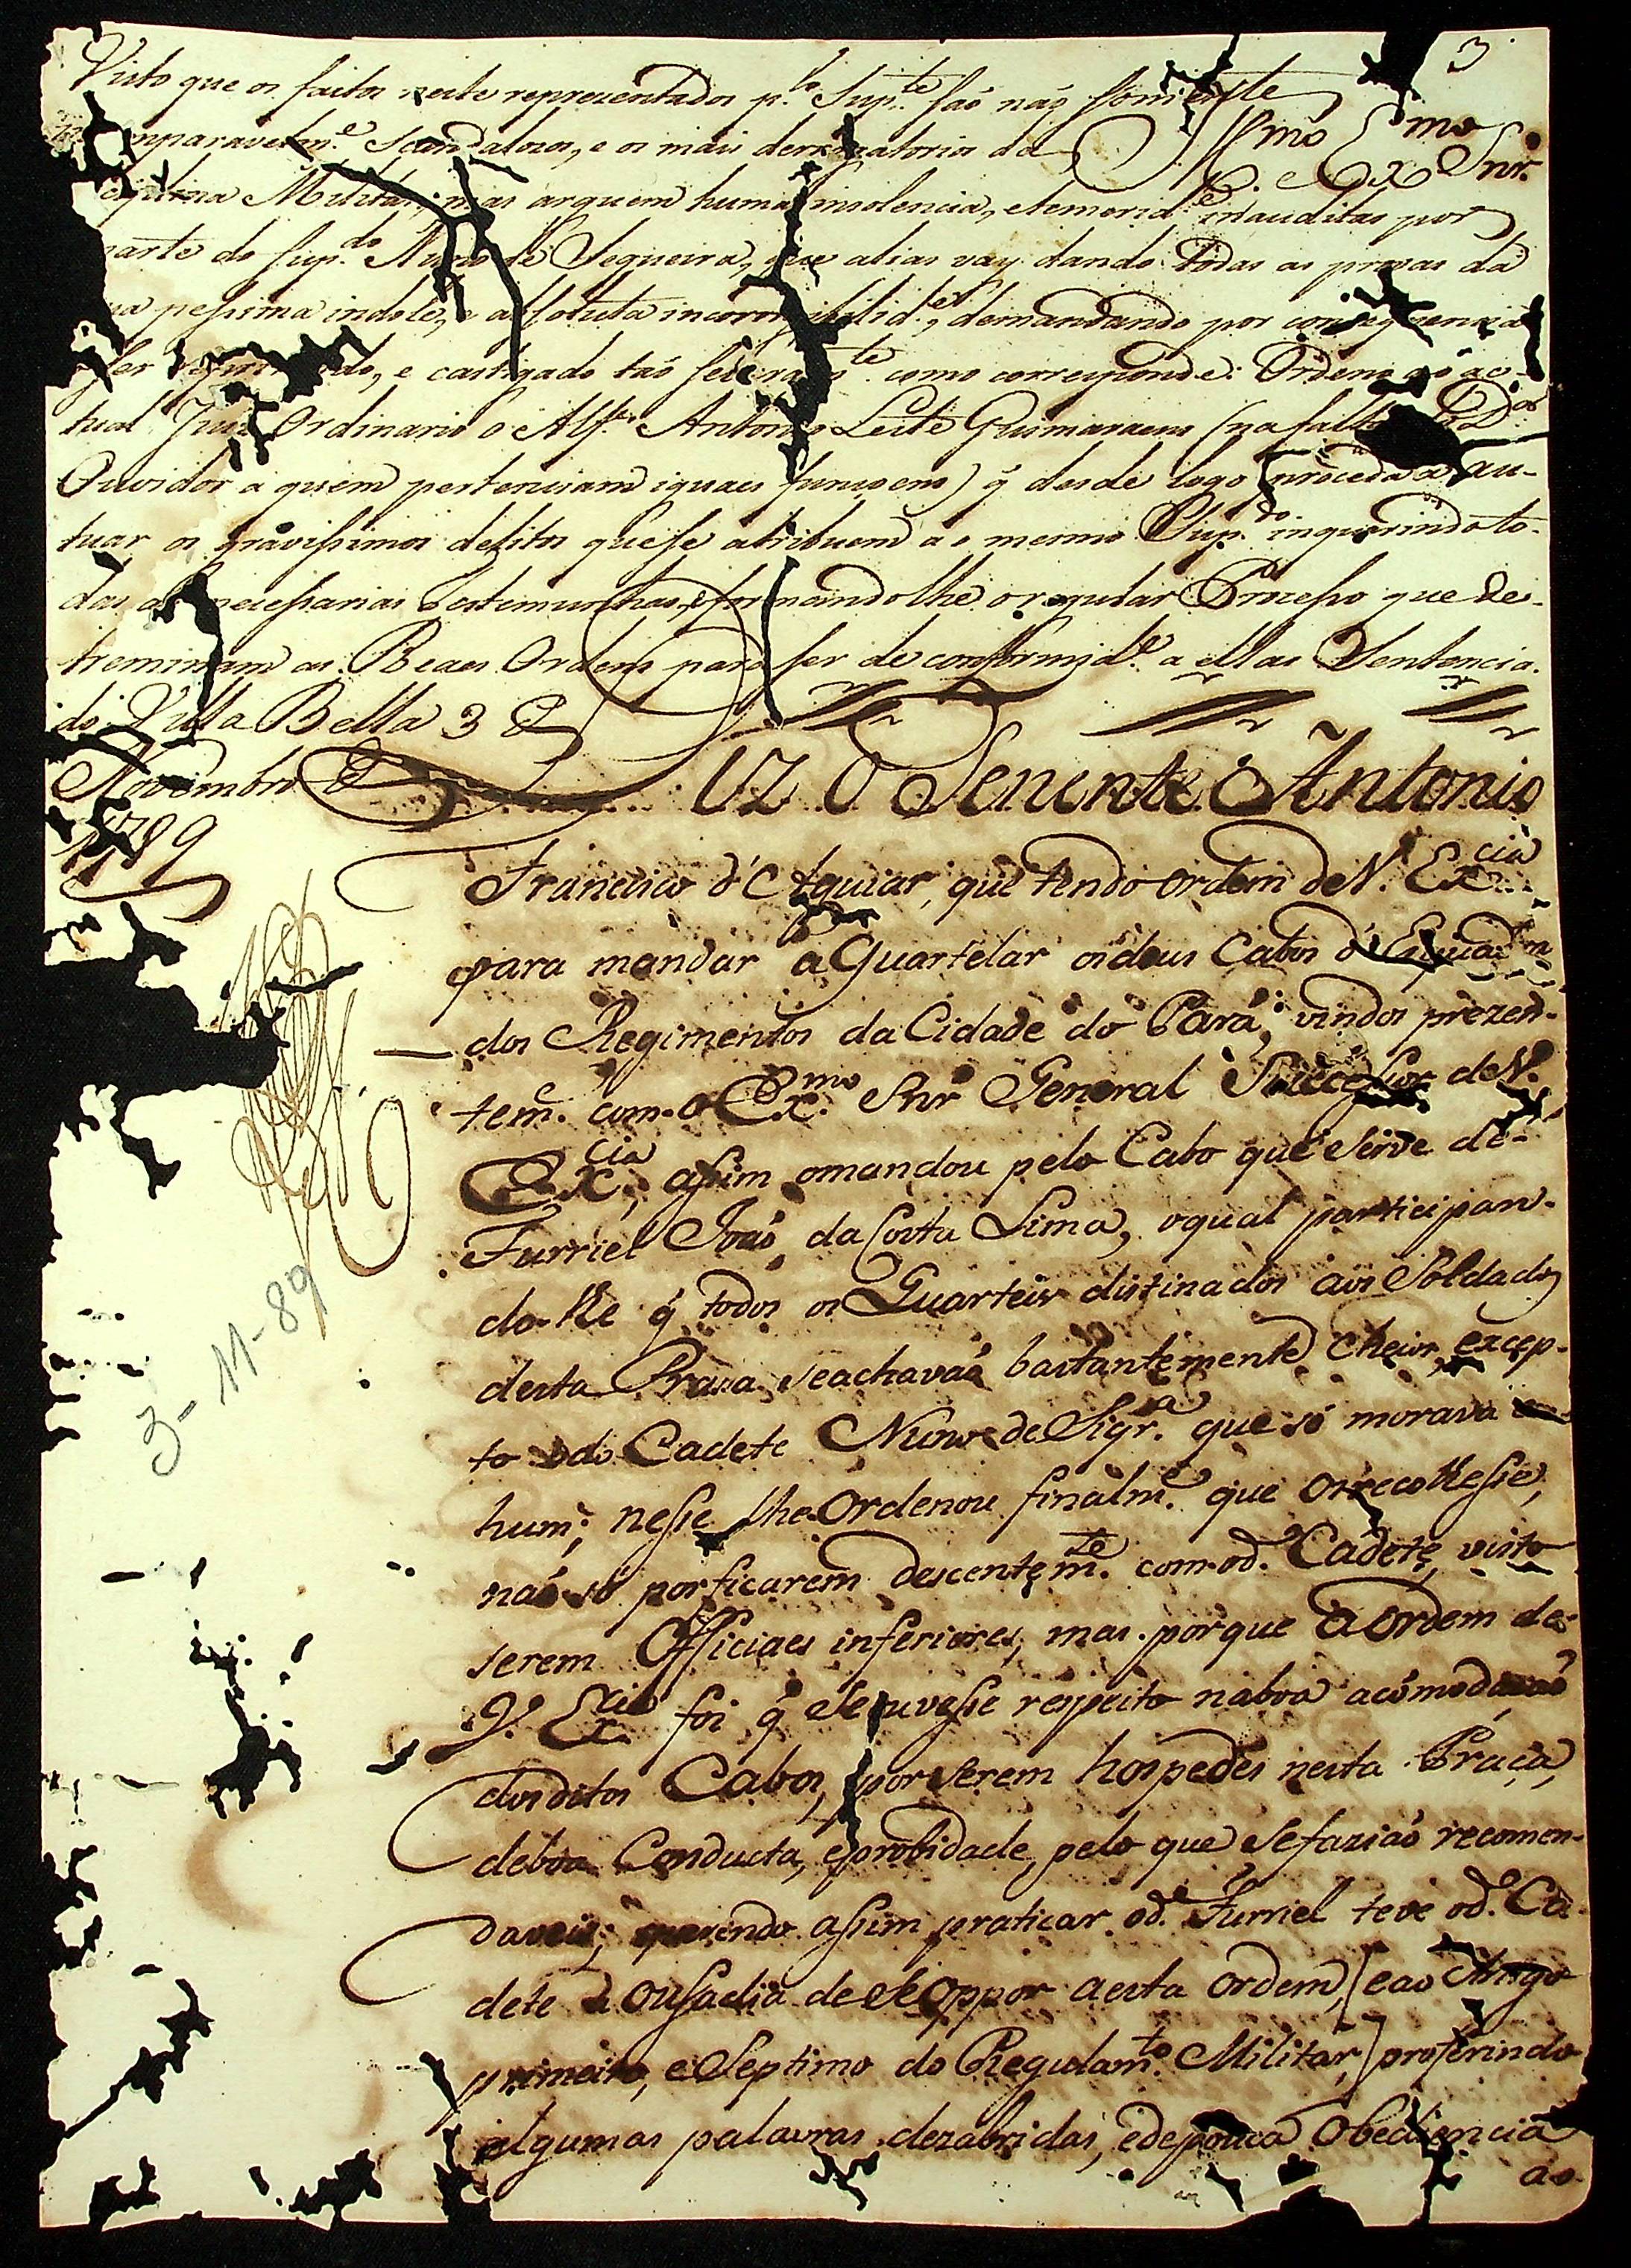 3
Visto que os factos neste reprezentados p.lo Sup.te saõ naõ somente
Ill.mo Ex.mo Snr.
mparavelm.e Scandalozos, e os mais derrogatorios da
Militar; mas arguem huma insolencia, e temerid.e inauditas por
parte do Sup.do Nuno de Sequeira, que alias vay dando todas as provas da
pessima indole, e absoluta incorrigibilid.e, demandando por consequencia
ser reprimido, e castigado taõ severam.te como corresponde: Ordeno ao ac-
tual Juiz Ordinario o Alf.s Antonio Leite Guimaraens (na falta D.or
Ouvidor a quem pertenciam iguaes funçoens) q̃ desde logo proceda a au-
tuar os gravissimos delitos que se atribuem ao mesmo Sup.do inquirindo to-
das as necessarias testemunhas, e formandolhe o regular Processo que de-
treminam as Reaes Ordens para ser de conformid.e a ellas Sentencia-
do Villa Bella 3 de
Novembro de
1789
3-11-89
Diz O Tenente Antonio
Francisco d'Aguiar, que tendo ordem de V. Ex.cia
para mandar aQuartelar os deus Cabos d'Esquadra
dos Regimentos da Cidade do Pará, vindos prezen-
tem.e com o Ex.mo Snr General Successor de V.
Ex.cia, assim o mandou pelo Cabo que serve de
Furriel Joaõ da Costa Lima, o qual participan-
do-lhe q̃ todos os Quarteis distinados aos Soldados
desta Praça se achavaõ bastantemente cheios, excep-
to o do Cadete Nuno de Siqr.a que só morava em
hum; nesse lhe Ordenou finalm.e que os recolhesse,
naõ só por ficarem descentem.te com o d.o Cadete, visto
serem Officiaes inferiores, mas porque a Ordem de
V. Ex.cia foi q̃ se tuvesse respeito na boa acómodaçaõ
dos ditos Cabos, por serem hospedes nesta Praça,
de boa Conducta, e probidade, pelo que se faziaõ recomen-
daveis; querendo assim praticar o d.o Furriel teve o d.o Ca-
dete a ousadia de se Oppor a esta Ordem, [e ao Artigo
primeiro, e Septimo do Regulam.to Militar,] proferindo
algumas palavras dezabridas, e de pouca Obediencia
ao